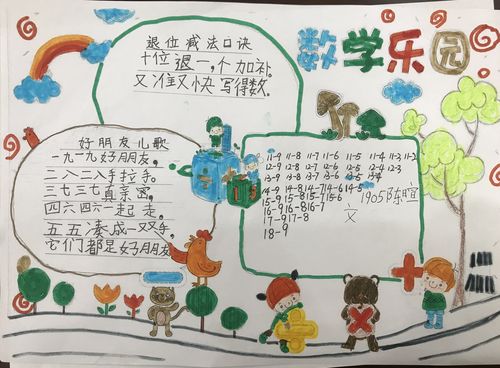 数学乐园
退位减法口诀
十位退一,个加补。
又准又快写得数。
好朋友儿歌
一九一九好朋友,
二八二八手拉手。
三七三七真亲密,
四六四六一起走。
五五凑成一双手,
它们都是好朋友
11-9 11-8 11-7 11-6 11-5 11-4 11-3 11-2
12-9 12-8 12-7 12-6 12-5 12-4 12-3
13-9 13-8 13-7 13-6 13-5 13-4
14-9 14-8 14-7 14-6 14-5
15-9 15-8 15-7 15-6
16-9 16-8 16-7
17-9 17-8
18-9
1905陈暄
文